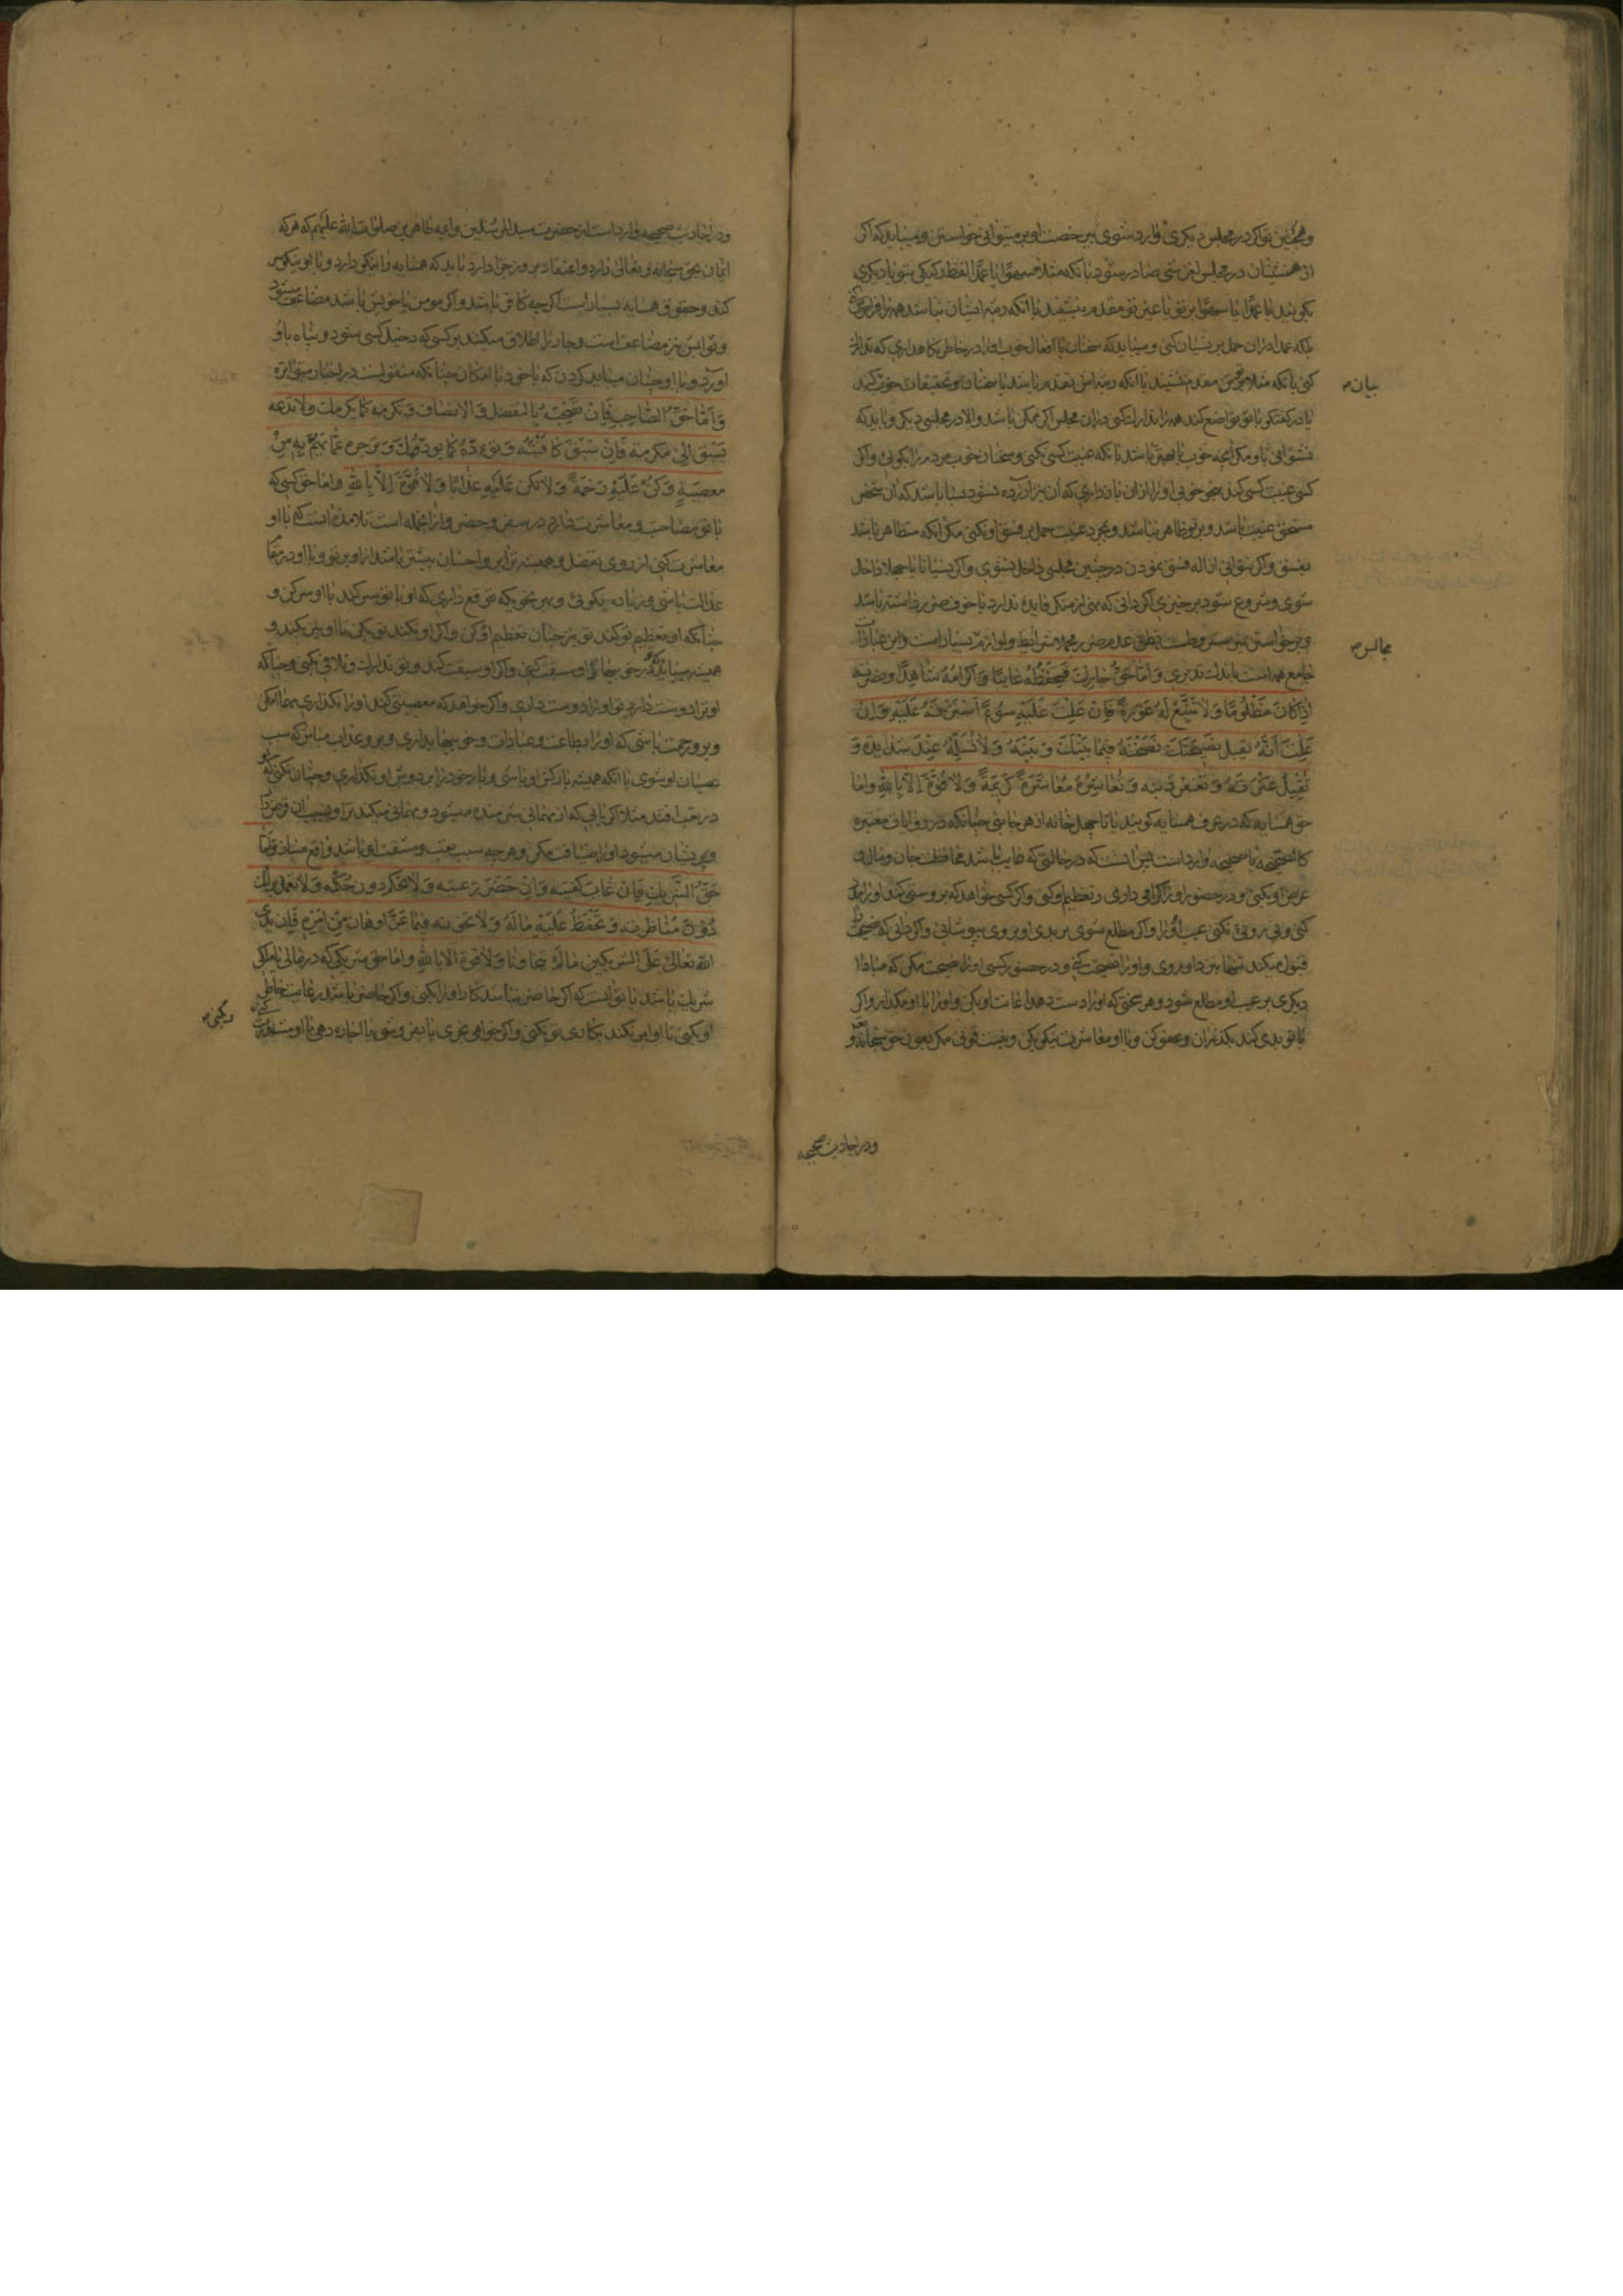 و همچنین تو اگر در مجلس دیگری وارد شوی بی رخصت او بر میتوانی خواستن و میباید که اگر
از همنشینان در مجلس لغزشی صادر شود بانکه مثلا سهوا یا عمدا لفظ رکیکی بتو یا دیگری
بگویند یا عمدا یا سهوا بر تو یا غیر تو مقدم بنشینند با انکه رتبه ایشان نباشد همه را فراموش کنی
بلکه عمدا را حمل بر نسیان کنی و میباید که سخنان یا افعال خوب او را در خاطر نگاهداری که تدارک
کنی بانکه مثلا بر تو مقدم ننشیند با انکه رتبه اش تقدم باشد یا سخنان و تحقیقات خوب کند
بیان
یا در گفتگو با تو تواضع کند همه را تدارک کنی در ان مجلس اگر ممکن باشد والا در مجلسی دیگر و باید که
نشنوانی باو مگر انچه خوب باشد بانکه غیبت کسی نکنی و سخنان خوب مردم را بگوئی و اگر
کسی غیبت کسی کند بنحو خوبی او را از ان باز داری که ان آزرده نشود بسا باشد که ان شخص
مستحق غیبت باشد و بر تو ظاهر نباشد و بمجرد غیبت حمل بر فسق او نکنی مگر انکه متظاهر باشد
بفسق و اگر نتوانی ازاله فسق نمودن در چنین مجلسی داخل نشوی و اگر نسیانا یا جهلا داخل
شوی و شروع شود برخیزی اگر دانی که نهی از منکر فایده ندارد یا خوف ضرر داشته باشد
و برخواستن نیز مشروط است بظن عدم ضرر مجملا شرایط و لوازم بسیار است و این عبارات
مجالس
جامع همه است باندک تدبری وَاَمّا حَقُّ جارِكَ فَحِفْظُهُ غائِبًا وَاِكْرامُهُ شاهِدًا وَنُصْرَتُهُ
اِذا كانَ مَظْلُومًا وَلا تَتَّبِعْ لَهُ عَوْرَةً فَاِنْ عَلِمْتَ عَلَيْهِ سُوءً سَتَرْتَهُ عَلَيْهِ وَاِنْ
عَلِمْتَ اَنَّهُ يَقْبَلُ نَصِيحَتَكَ نَصَحْتَهُ فِيما بَيْنَكَ وَبَيْنَهُ وَلا تُسَلِّمْهُ عِنْدَ شَدِيدَةٍ وَ
تُقِيلُ عَثْرَتَهُ وَتَغْفِرُ ذَنْبَهُ وَتُعاشِرُهُ مُعاشَرَةً كَرِيمَةً وَلا قُوَّةَ اِلّا بِاللهِ و اما
حق همسایه که در عرف همسایه گویند یا تا چهل خانه از هر جانبی چنانکه در روایات معتبره
کالصحیحه یا صحیحه وارد است پس انست که در حالتی که غایب باشد محافظت جان و مال و
عرض او بکنی و در حضور او را گرامی داری و تعظیم او کنی و اگر کسی خواهد که بر او ستمی کند او را مدد
کنی و پی روی نکنی عیب او را و اگر مطلع شوی بر بدی او بر وی بپوشانی و اگر دانی که نصیحت
قبول میکند تنها بنزد او روی و او را نصیحت کنی و در حضور کسی او را نصیحت مکن که مبادا
دیگری بر عیب او مطلع شود و هر سختی که او را دست دهد اعانت او بکن و او را با او مگذار و اگر
با تو بدی کند بگذران و عفو کن و با او معاشرت نیکو بکن و نیست قوتی مگر بعون حق سبحانه و تعالی
و در احادیث صحیحه
و در احادیث صحیحه وارد است از حضرت سید المرسلین و ایمه طاهرین صلوات الله علیهم که هر که
ایمان بحق سبحانه و تعالی دارد و اعتقاد بروز جزا دارد باید که همسایه را نیکو دارد و با او نیکوئی
کند و حقوق همسایه بسیار است اگر چه کافر باشد و اگر مومن یا خویش باشد مضاعف میشود
و ثوابش نیز مضاعف است و جار را اطلاق میکنند بر کسی که دخیل کسی شود و پناه باو
اورد و با او چنان میباید کردن که با خود با امکان چنانکه منقولست در اخبار متواتره
وَاَمّا حَقُّ الصّاحِبِ فَاَنْ تَصْحَبَهُ بِالتَّفَضُّلِ وَالاِنْصافِ وَتُكْرِمَهُ كَما يُكْرِمُكَ وَلا تَدَعَهُ
يَسْبِقُ اِلى مَكْرُمَةٍ فَاِنْ سَبَقَ كافَيْتَهُ وَتَوَدَّهُ كَما يَوَدُّكَ وَتَزْجُرَهُ عَمّا يَهُمُّ بِهِ مِنْ
مَعْصِيَةٍ وَكُنْ عَلَيْهِ رَحْمَةً وَلا تَكُنْ عَلَيْهِ عَذابًا وَلا قُوَّةَ اِلّا بِاللهِ و اما حق کسی که
با تو مصاحبت و معاشرت دارد در سفر و حضر و از انجمله است تلامذه انست که با او
معاشرت کنی از روی تفضل و همیشه برّ و احسان بیشتر باشد از او بر تو و با او در مقام
عدالت باشی و زیاده نیکوئی و بهر نحویکه توقع داری که او با تو سر کند با او سر کن و
چنانکه او تعظیم تو کند تو نیز چنان تعظیم او کن و اگر او نکند تو بکن تا او نیز بکند و
همیشه میباید که در خوبیها تو از او سبقت کنی و اگر او سبقت کند و تو تدارک و تلافی بکنی و چنانکه
او ترا دوست دارد تو او را دوست داری و اگر خواهد که معصیتی کند او را نگذاری مهما امکن
و بر او رحمت باشی که او را بطاعت و عبادات و خوبیها بداری و بر او عذاب مباش که سبب
عصیان او شوی یا انکه همیشه بارکش او باشی و بار خود را بر دوش او نگذاری و چنان نکنی که او
در تعب افتد مثلا اگر یابی که از مهمانی شرمنده میشود و مهمانی میکند ترا و بسبب ان قرضدار
و پریشان میشود او را ضیافت مکن و هر چه سبب تعب و مشقت او باشد واقع مساز وَاَمّا
حَقُّ الشَّرِيكِ فَاِنْ غابَ كَفَيْتَهُ وَاِنْ حَضَرَ رَعَيْتَهُ وَلا تَحْكُمْ دُونَ حُكْمِهِ وَلا تَعْمَلْ بِرَأْيِكَ
دُونَ مُناظَرَتِهِ وَتَحْفَظُ عَلَيْهِ مالَهُ وَلا تَخُونُهُ فِيما عَزَّ اَوْ هانَ مِنْ اَمْرِهِ فَاِنَّ يَدَ
اللهِ تَعالى عَلَى الشَّرِيكَيْنِ ما لَمْ يَتَخاوَنا وَلا قُوَّةَ اِلّا بِاللهِ و اما حق شریکی که در مالی یا ملکی
شریک باشد با تو انست که اگر حاضر نباشد کار او را بکنی و اگر حاضر باشد رعایت خاطر
او بکنی تا او امر نکند بکاری تو نکنی و اگر خواهی بخری یا بفروشی یا اجاره دهی با او مشورت